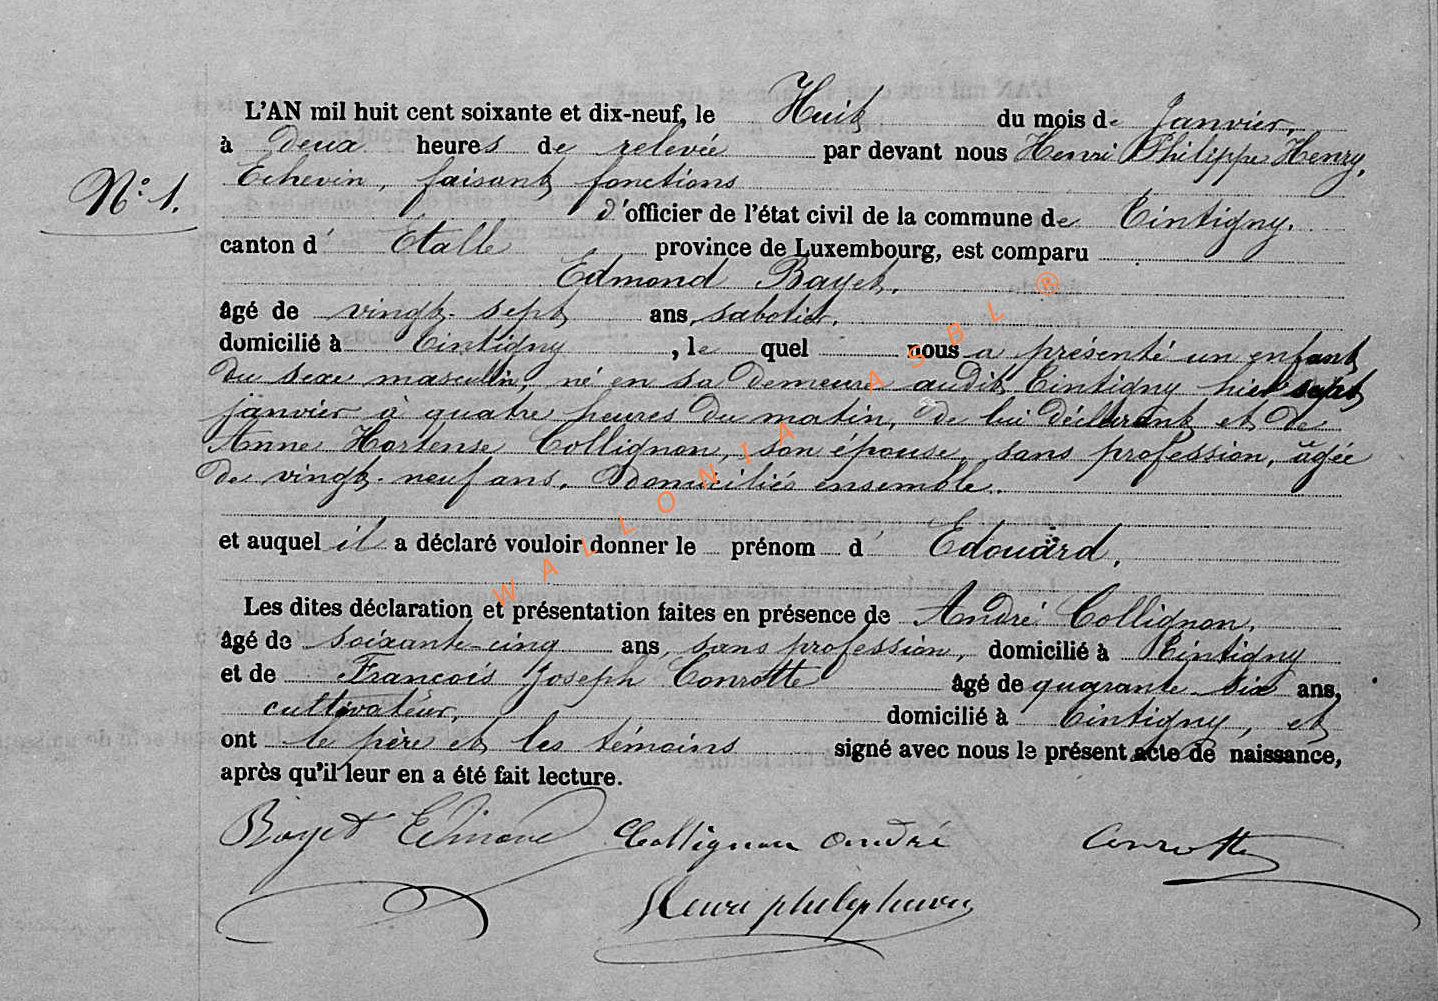 L'AN mil huit cent soixante et dix-neuf, le Huit du mois de Janvier,
à deux heures de relevée par devant nous Henri Philippe Henry,
N° 1.
Echevin, faisant fonctions
d'officier de l'état civil de la commune de Tintigny.
canton d'Etalle province de Luxembourg, est comparu
Edmond Bayet,
âgé de vingt-sept ans, sabotier,
domicilié à Tintigny, lequel nous a présenté un enfant
du sexe masculin, né en sa demeure audit Tintigny hier sept
janvier à quatre heures du matin, de lui déclarant et de
Anne Hortense Collignon, son épouse, sans profession, âgée
de vingt-neuf ans, Domiciliés ensemble.
et auquel il a déclaré vouloir donner le prénom d'Edouard.
Les dites déclaration et présentation faites en présence de André Collignon,
âgé de soixante-cinq ans, sans profession, domicilié à Tintigny
et de François Joseph Conrotte âgé de quarante-six ans,
cultivateur, domicilié à Tintigny, et
ont le père et les témoins signé avec nous le présent acte de naissance,
après qu'il leur en a été fait lecture.
Bayet Edmond Collignon andré Conrotte
Henri philip henry
WALLONIA ASBL ®